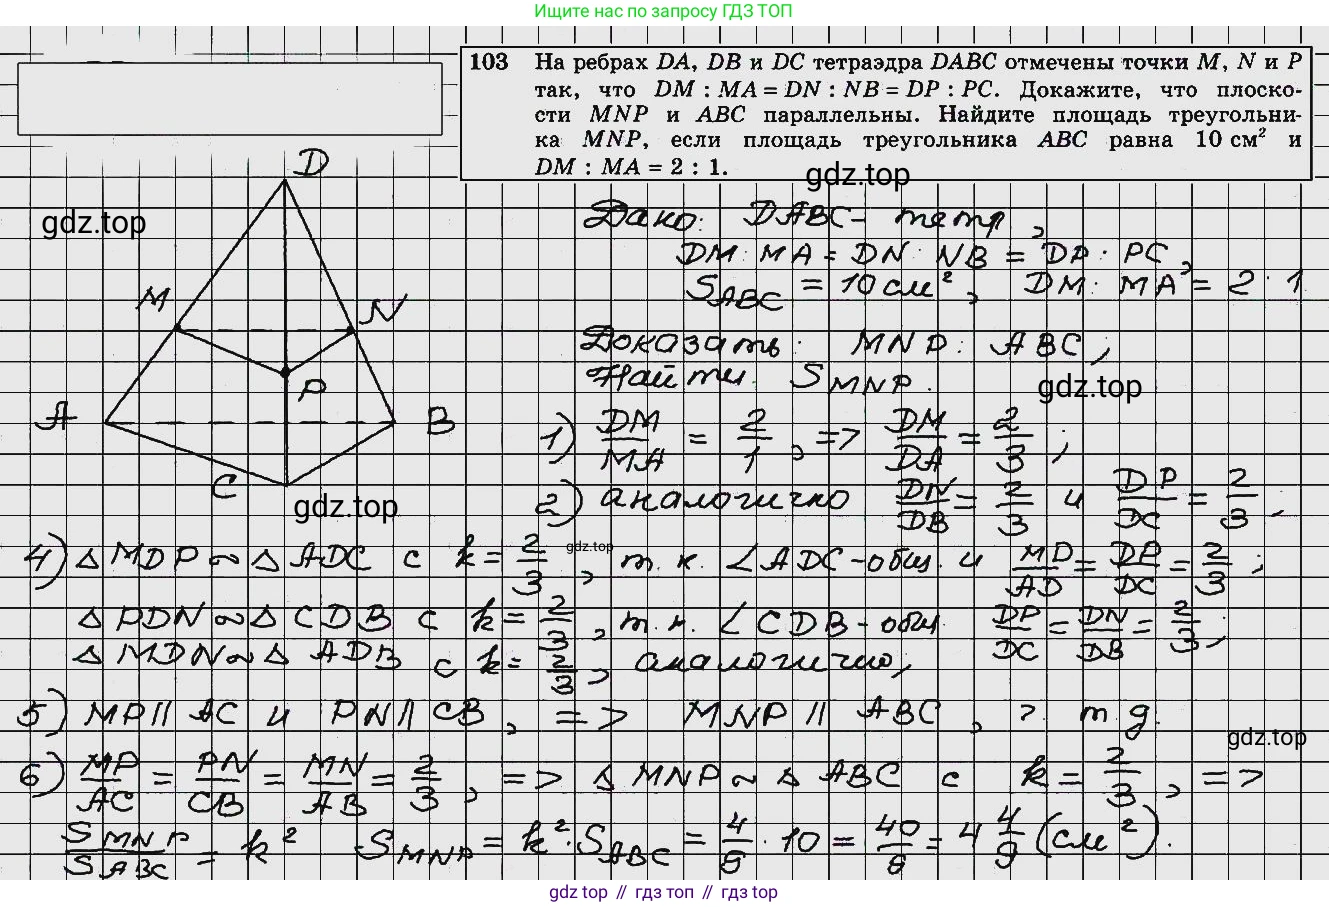 Ищите нас по запросу ГДЗ ТОП
103 На ребрах DA, DB и DC тетраэдра DABC отмечены точки M, N и P
так, что DM : MA = DN : NB = DP : PC. Докажите, что плоско-
сти MNP и ABC параллельны. Найдите площадь треугольни-
ка MNP, если площадь треугольника ABC равна 10 см² и
DM : MA = 2 : 1.
gdz.top
gdz.top
D
M
N
P
A
B
C
gdz.top
Дано: DABC - тетр,
DM : MA = DN : NB = DP : PC,
S_ABC = 10 см², DM : MA = 2 : 1
Доказать: MNP : ABC,
Найти: S_MNP.
gdz.top
1) DM/MA = 2/1, => DM/DA = 2/3;
2) аналогично DN/DB = 2/3 и DP/DC = 2/3,
4) △ MDP ∾ △ ADC с k = 2/3, т.к. ∠ADC - общ. и MD/AD = DP/DC = 2/3;
gdz.top
△ PDN ∾ △ CDB с k = 2/3, т.к. ∠CDB - общ. DP/DC = DN/DB = 2/3;
△ MDN ∾ △ ADB с k = 2/3, аналогично,
5) MP || AC и PN || CB, => MNP || ABC, ? т д.
gdz.top
6) MP/AC = PN/CB = MN/AB = 2/3, => △ MNP ~ △ ABC с k = 2/3, =>
S_MNP/S_ABC = k² S_MNP = k² · S_ABC = 4/9 · 10 = 40/9 = 4 4/9 (см²).
gdz.top // гдз топ // гдз top